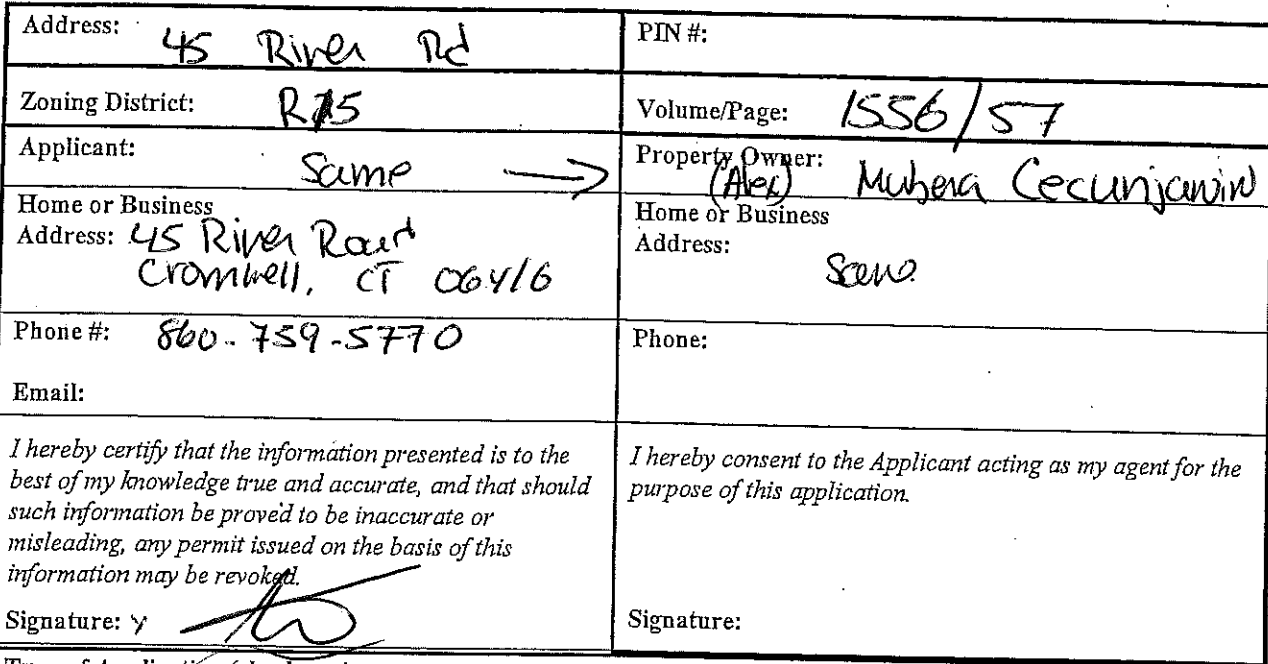 Address: 45 River Rd
PIN #:
Zoning District: R15
Volume/Page: 1556/57
Applicant: Same →
Property Owner: (Alex) Mubera Cecunjanin
Home or Business
Address: 45 River Road
Cromwell, CT 06416
Home or Business
Address: Same
Phone #: 860-759-5770
Phone:
Email:
I hereby certify that the information presented is to the
best of my knowledge true and accurate, and that should
such information be proved to be inaccurate or
misleading, any permit issued on the basis of this
information may be revoked.
Signature:
I hereby consent to the Applicant acting as my agent for the
purpose of this application.
Signature: